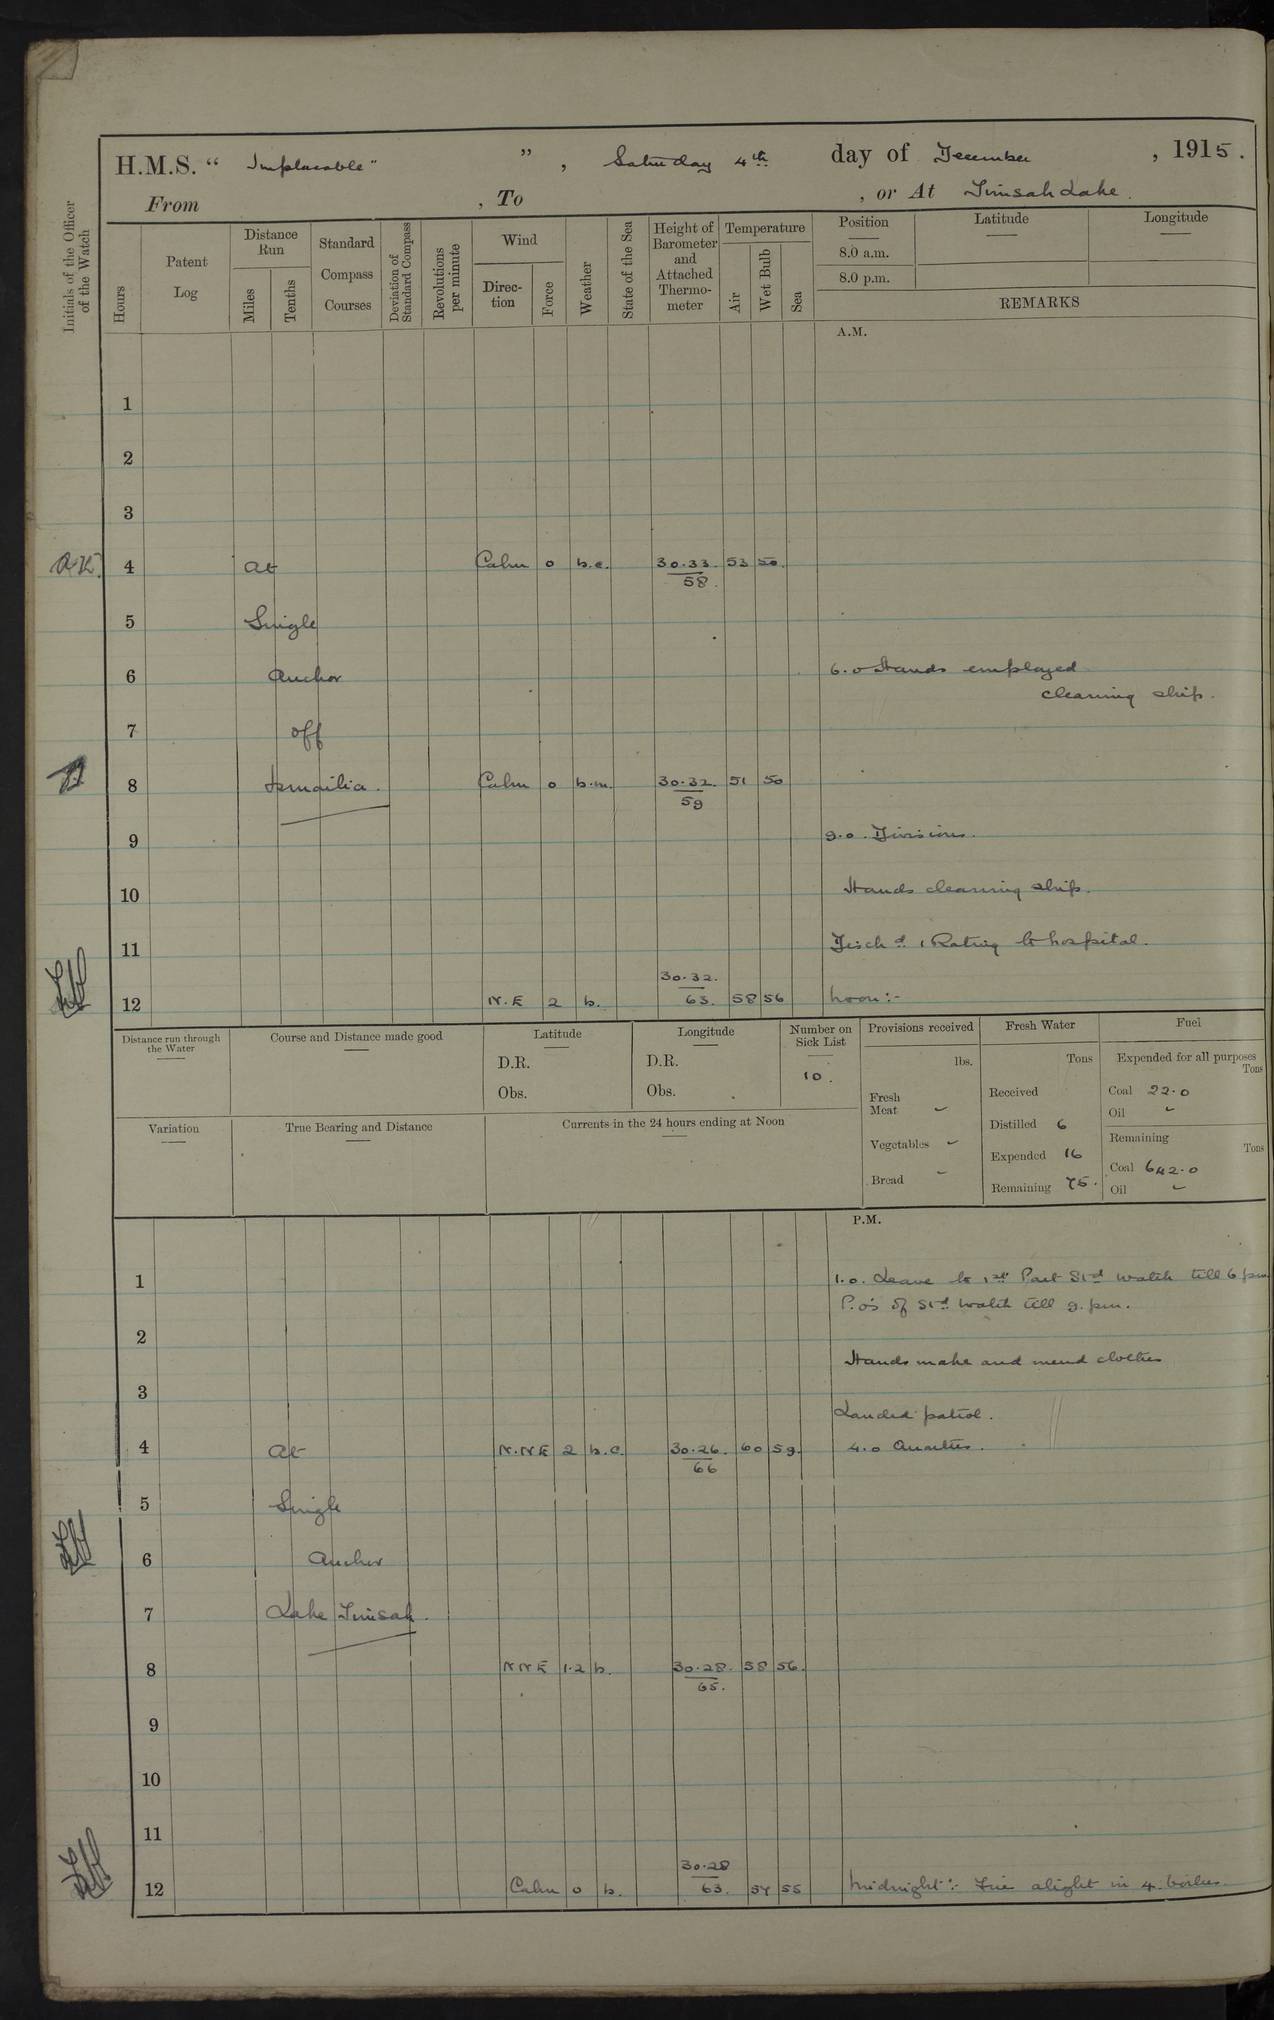 H.M.S. “ Implacable" ” , Saturday 4th day of December , 1915.
From , To , or At Timsah Lake.
Initials of the Officer of the Watch
Hours
Patent Log
Distance Run
Miles
Tenths
Standard Compass Courses
Deviation of Standard Compass
Revolutions per minute
Wind
Direc-tion
Force
Weather
State of the Sea
Height of Barometer and Attached Thermo-meter
Temperature
Air
Wet Bulb
Sea
Position
8.0 a.m.
8.0 p.m.
Latitude
Longitude
REMARKS
A.M.
1
2
3
4 At Calm 0 b.c. 30.33. 53 50.
58.
5 Single
6 Anchor 6.0 Hands employed
cleaning ship.
7 off
8 Ismailia. Calm 0 b.m. 30.32. 51 50
59
9 9.0. Divisions.
10 Hands cleaning ship.
11 Disch d. 1 Rating to hospital.
30.32.
12 N.E 2 b. 63. 58 56 Noon:-
Distance run through the Water
Course and Distance made good
Latitude
D.R.
Obs.
Longitude
D.R.
Obs.
Number on Sick List
10.
Provisions received
lbs.
Fresh Meat -
Vegetables -
Bread -
Fresh Water
Tons
Received
Distilled 6
Expended 16
Remaining 75.
Fuel
Expended for all purposes
Tons
Coal 22.0
Oil -
Remaining
Tons
Coal 642.0
Oil -
Variation
True Bearing and Distance
Currents in the 24 hours ending at Noon
P.M.
1 1.0. Leave to 1st Part Std watch till 6 pm
P.O's of Std watch till 9. pm.
2
Hands make and mend clothes
3
Landed patrol.
4 At N.NE 2 b.c. 30.26. 60 59. 4.0 Quarters.
66
5 Single
6 Anchor
7 Lake Timsah.
8 NNE 1.2 b. 30.28. 58 56.
65.
9
10
11
30.28
12 Calm 0 b. 63. 57 55 Midnight:- Fires alight in 4 boilers.